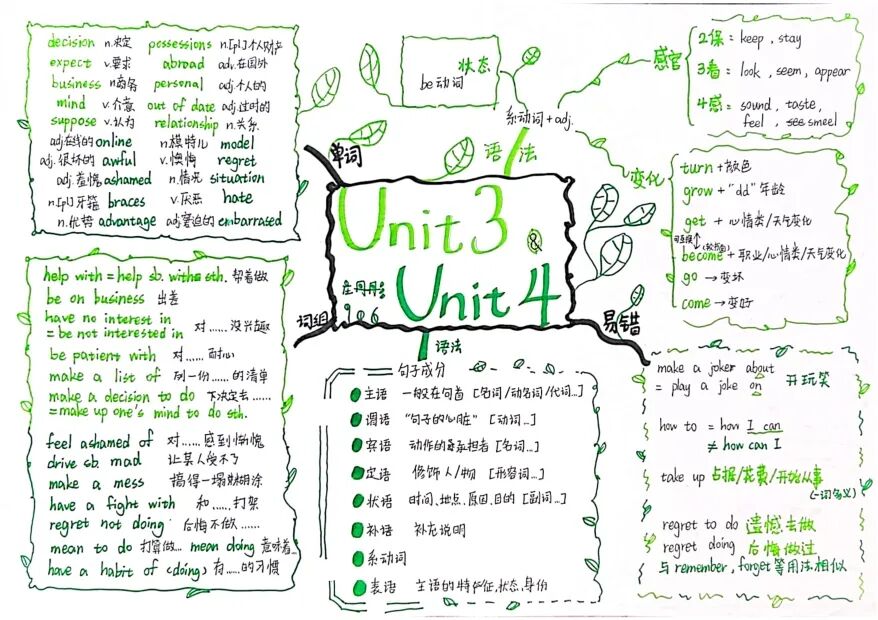 decision n.决定 possessions n.[pl]个人财产
expect v.要求 abroad adv.在国外
business n.商务 personal adj.个人的
mind v.介意 out of date adj.过时的
suppose v.认为 relationship n.关系
adj.在线的 online n.模特儿 model
adj.很坏的 awful v.懊悔 regret
adj.羞愧 ashamed n.情况 situation
n.[pl]牙箍 braces v.厌恶 hate
n.优势 advantage adj.窘迫的 embarrased
单词
状态
be动词
系动词+adj.
语法
感官
2保: keep, stay
3看: look, seem, appear
4感: sound, taste,
feel, smeel
变化
turn+颜色
grow+"dd"年龄
get+心情类/天气变化
become+职业/心情类/天气变化
go→变坏
come→变好
Unit 3
&
Unit 4
906
词组
help with = help sb. with sth. 帮着做
be on business 出差
have no interest in
= be not interested in 对……没兴趣
be patient with 对……耐心
make a list of 列一份……的清单
make a decision to do 下决定去……
=make up one's mind to do sth.
feel ashamed of 对……感到惭愧
drive sb. mad 让某人受不了
make a mess 搞得一塌糊涂
have a fight with 和……打架
regret not doing 后悔不做……
mean to do 打算做… mean doing 意味着…
have a habit of (doing) 有……的习惯
语法
句子成分
主语 一般在句首 [名词/动名词/代词…]
谓语 "句子的心脏" [动词…]
宾语 动作的承担者 [名词…]
定语 修饰人/物 [形容词…]
状语 时间、地点、原因、目的 [副词…]
补语 补充说明
系动词
表语 主语的特征、状态、身份
易错
make a joker about
= play a joke on 开玩笑
how to = how I can
≠ how can I
take up 占据/花费/开始从事
(一词多义)
regret to do 遗憾去做
regret doing 后悔做过
与remember, forget等用法相似